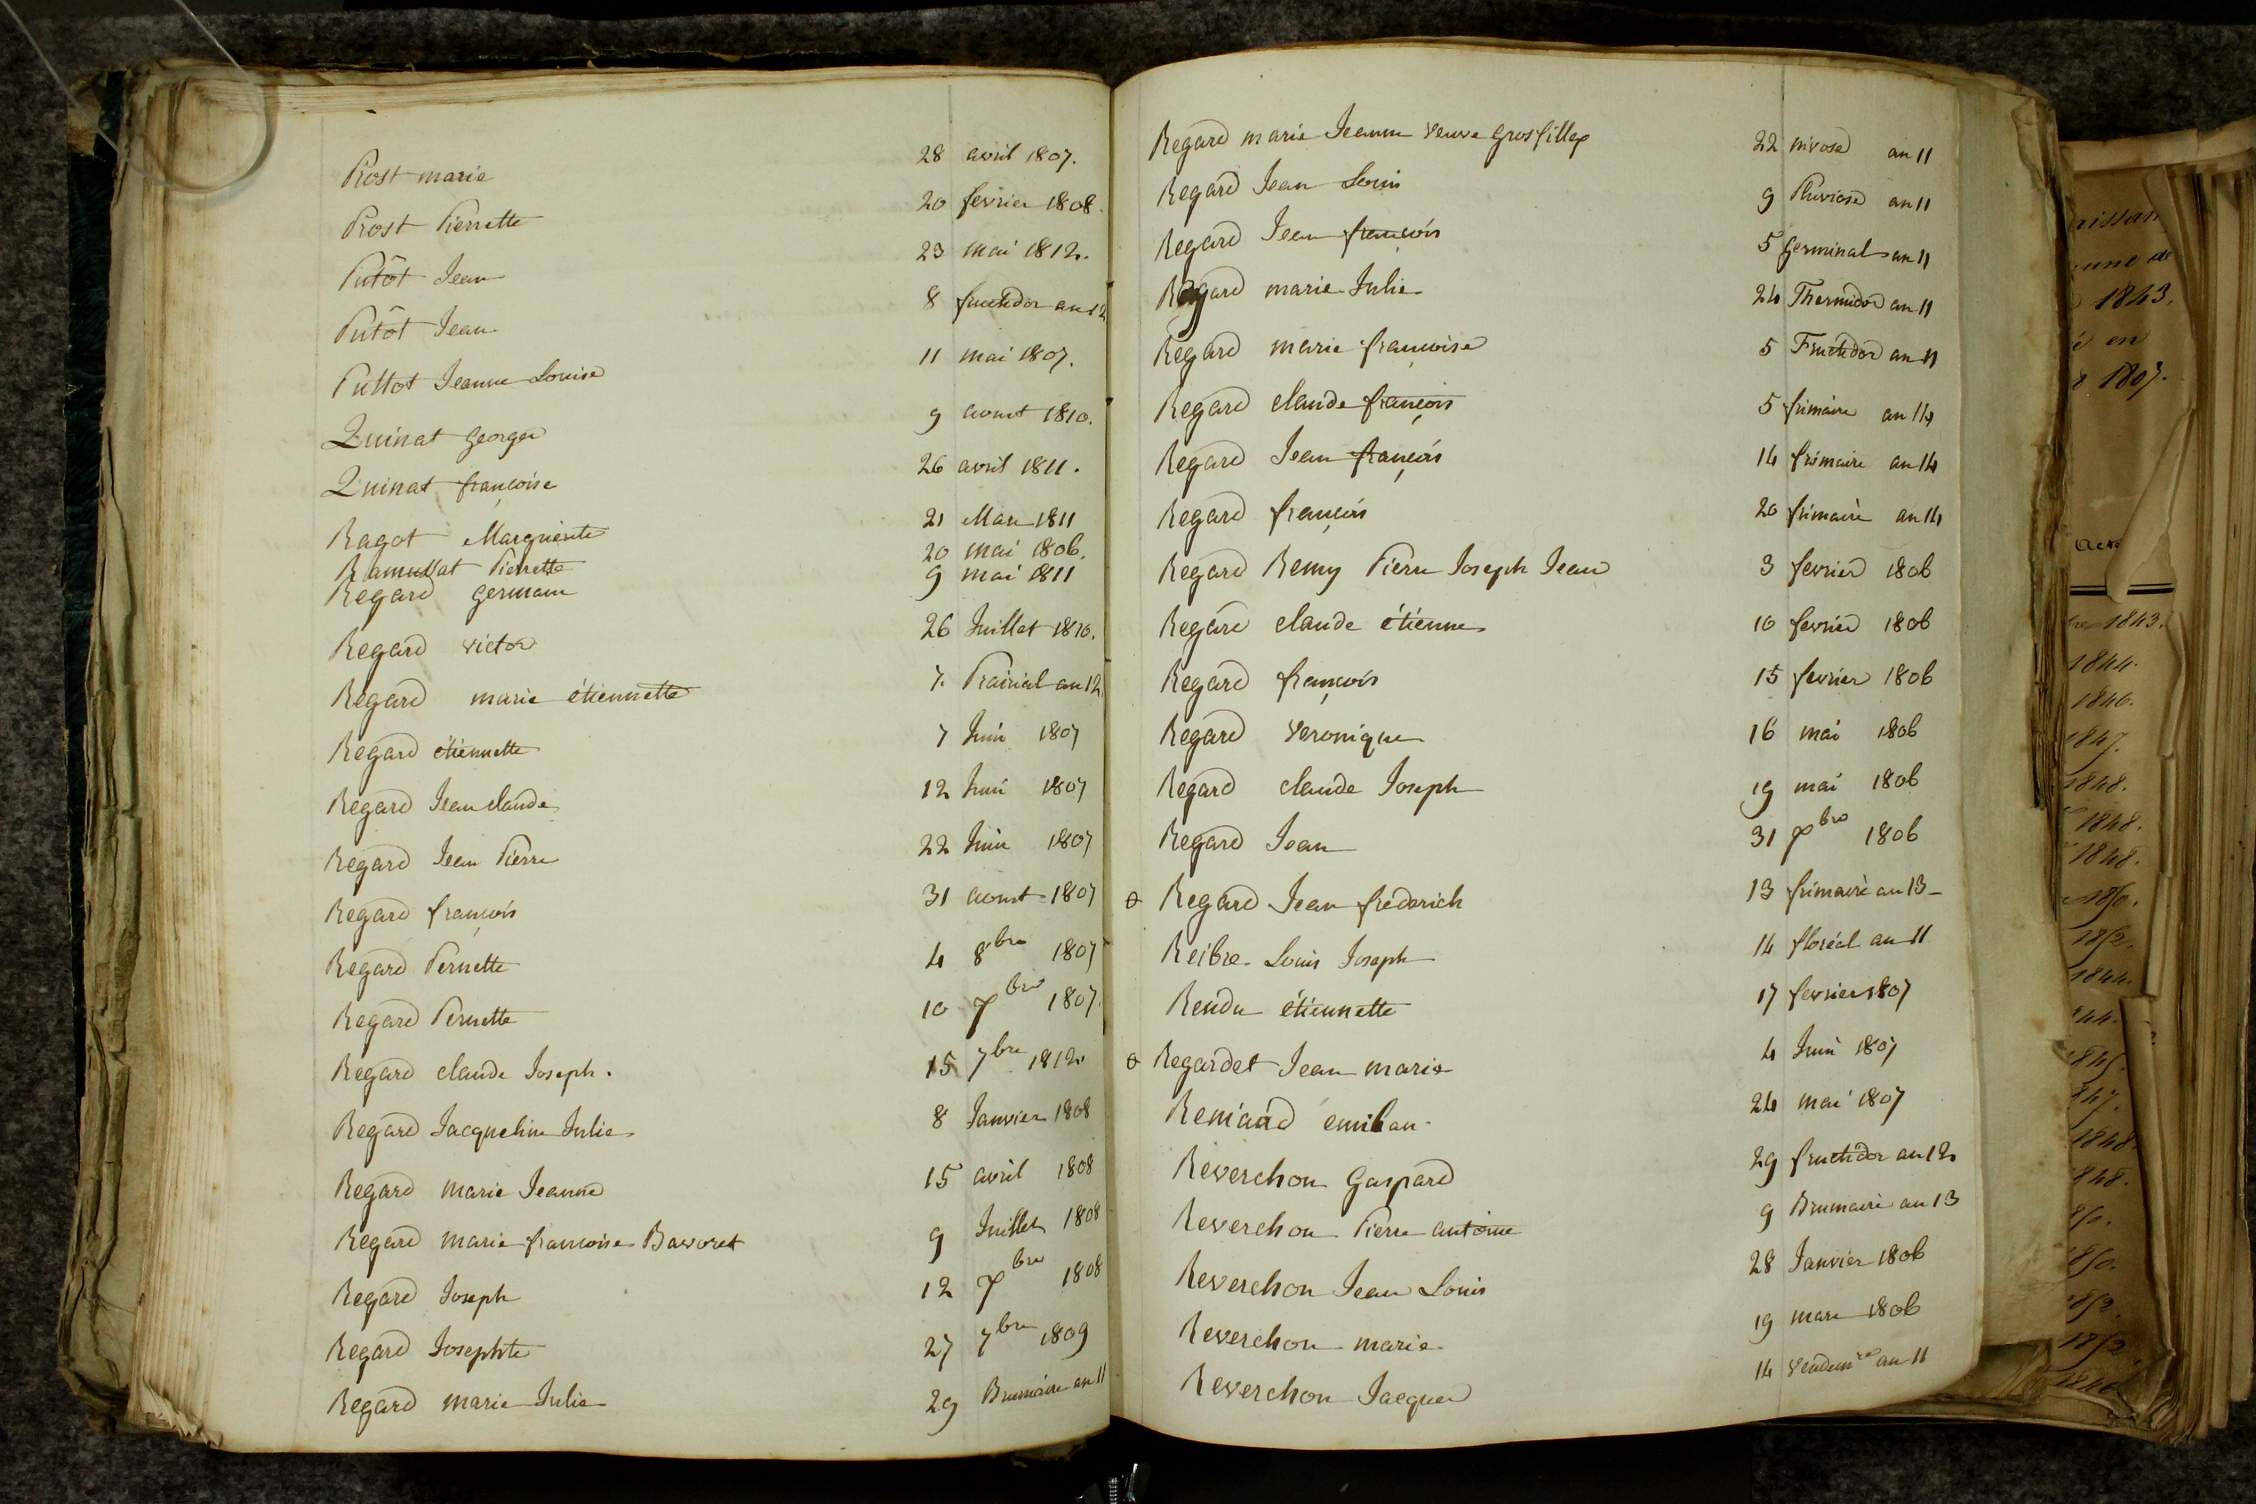 Prost marie 28 avril 1807.
Prost Pierrette 20 fevrier 1808.
Putôt Jean 23 mai 1812.
Putôt Jean 8 fructidor an 12
Puttot Jeanne Louise 11 mai 1807.
Quinat George 9 aoust 1810.
Quinat françoise 26 avril 1811.
Ragot Marguerite 21 Mars 1811
Pierrette 20 mai 1806.
Regard germain 9 mai 1811
Regard victor 26 Juillet 1810.
Regard marie étiennette 7. Prairial an 12.
Regard étiennette 7 Juin 1807
Regard Jean claude 12 Juin 1807
Regard Jean Pierre 22 Juin 1807
Regard françois 31 aoust 1807
Regard Pernette 4 8bre 1807
Regard Pernette 10 7bre 1807.
Regard claude Joseph. 15 7bre 1812
Regard Jacqueline Julie 8 Janvier 1808
Regard marie Jeanne 15 avril 1808
Regard marie françoise Bavoret 9 Juillet 1808
Regard Joseph 12 7bre 1808
Regard Josephte 27 7bre 1809
Regard marie Julie 29 Brumaire an 11
Regard marie Jeanne veuve grosfillex 22 nivose an 11
Regard Jean Louis 9 Pluviose an 11
Regard Jean françois 5 germinal an 11
Regard marie Julie 24 Thermidor an 11
Regard marie françoise 5 Fructidor an 11
Regard claude françois 5 frimaire an 14
Regard Jean françois 14 frimaire an 14
Regard françois 20 frimaire an 14
Regard Remy Pierre Joseph Jean 3 fevrier 1806
Regard claude étienne 10 fevrier 1806
Regard françois 15 fevrier 1806
Regard Veronique 16 mai 1806
Regard claude Joseph 19 mai 1806
Regard Jean 31 7bre 1806
Regard Jean fréderich 13 frimaire an 13
Reibre Louis Joseph 14 floréal an 11
Rendu étiennette 17 fevrier 1807
Regardet Jean marie 4 Juin 1807
emilan 24 mai 1807
Reverchon Gaspard 29 fructidor an 12
Reverchon Pierre antoine 9 Brumaire an 13
Reverchon Jean Louis 28 Janvier 1806
Reverchon marie 19 mars 1806
Reverchon Jacques 14 vendemre an 11
1843.
en
1807.
1843.
1844.
1846.
1847.
1848.
1848.
1848.
1844.